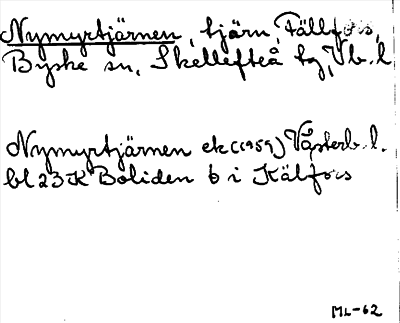 Nymyrtjärnen, tjärn, Fällfors,
Byske sn, Skellefteå tg, Vb. l
Nymyrtjärnen ek (1959) Västerb. l.
bl 23K Boliden 6 i Källfors
ML-62